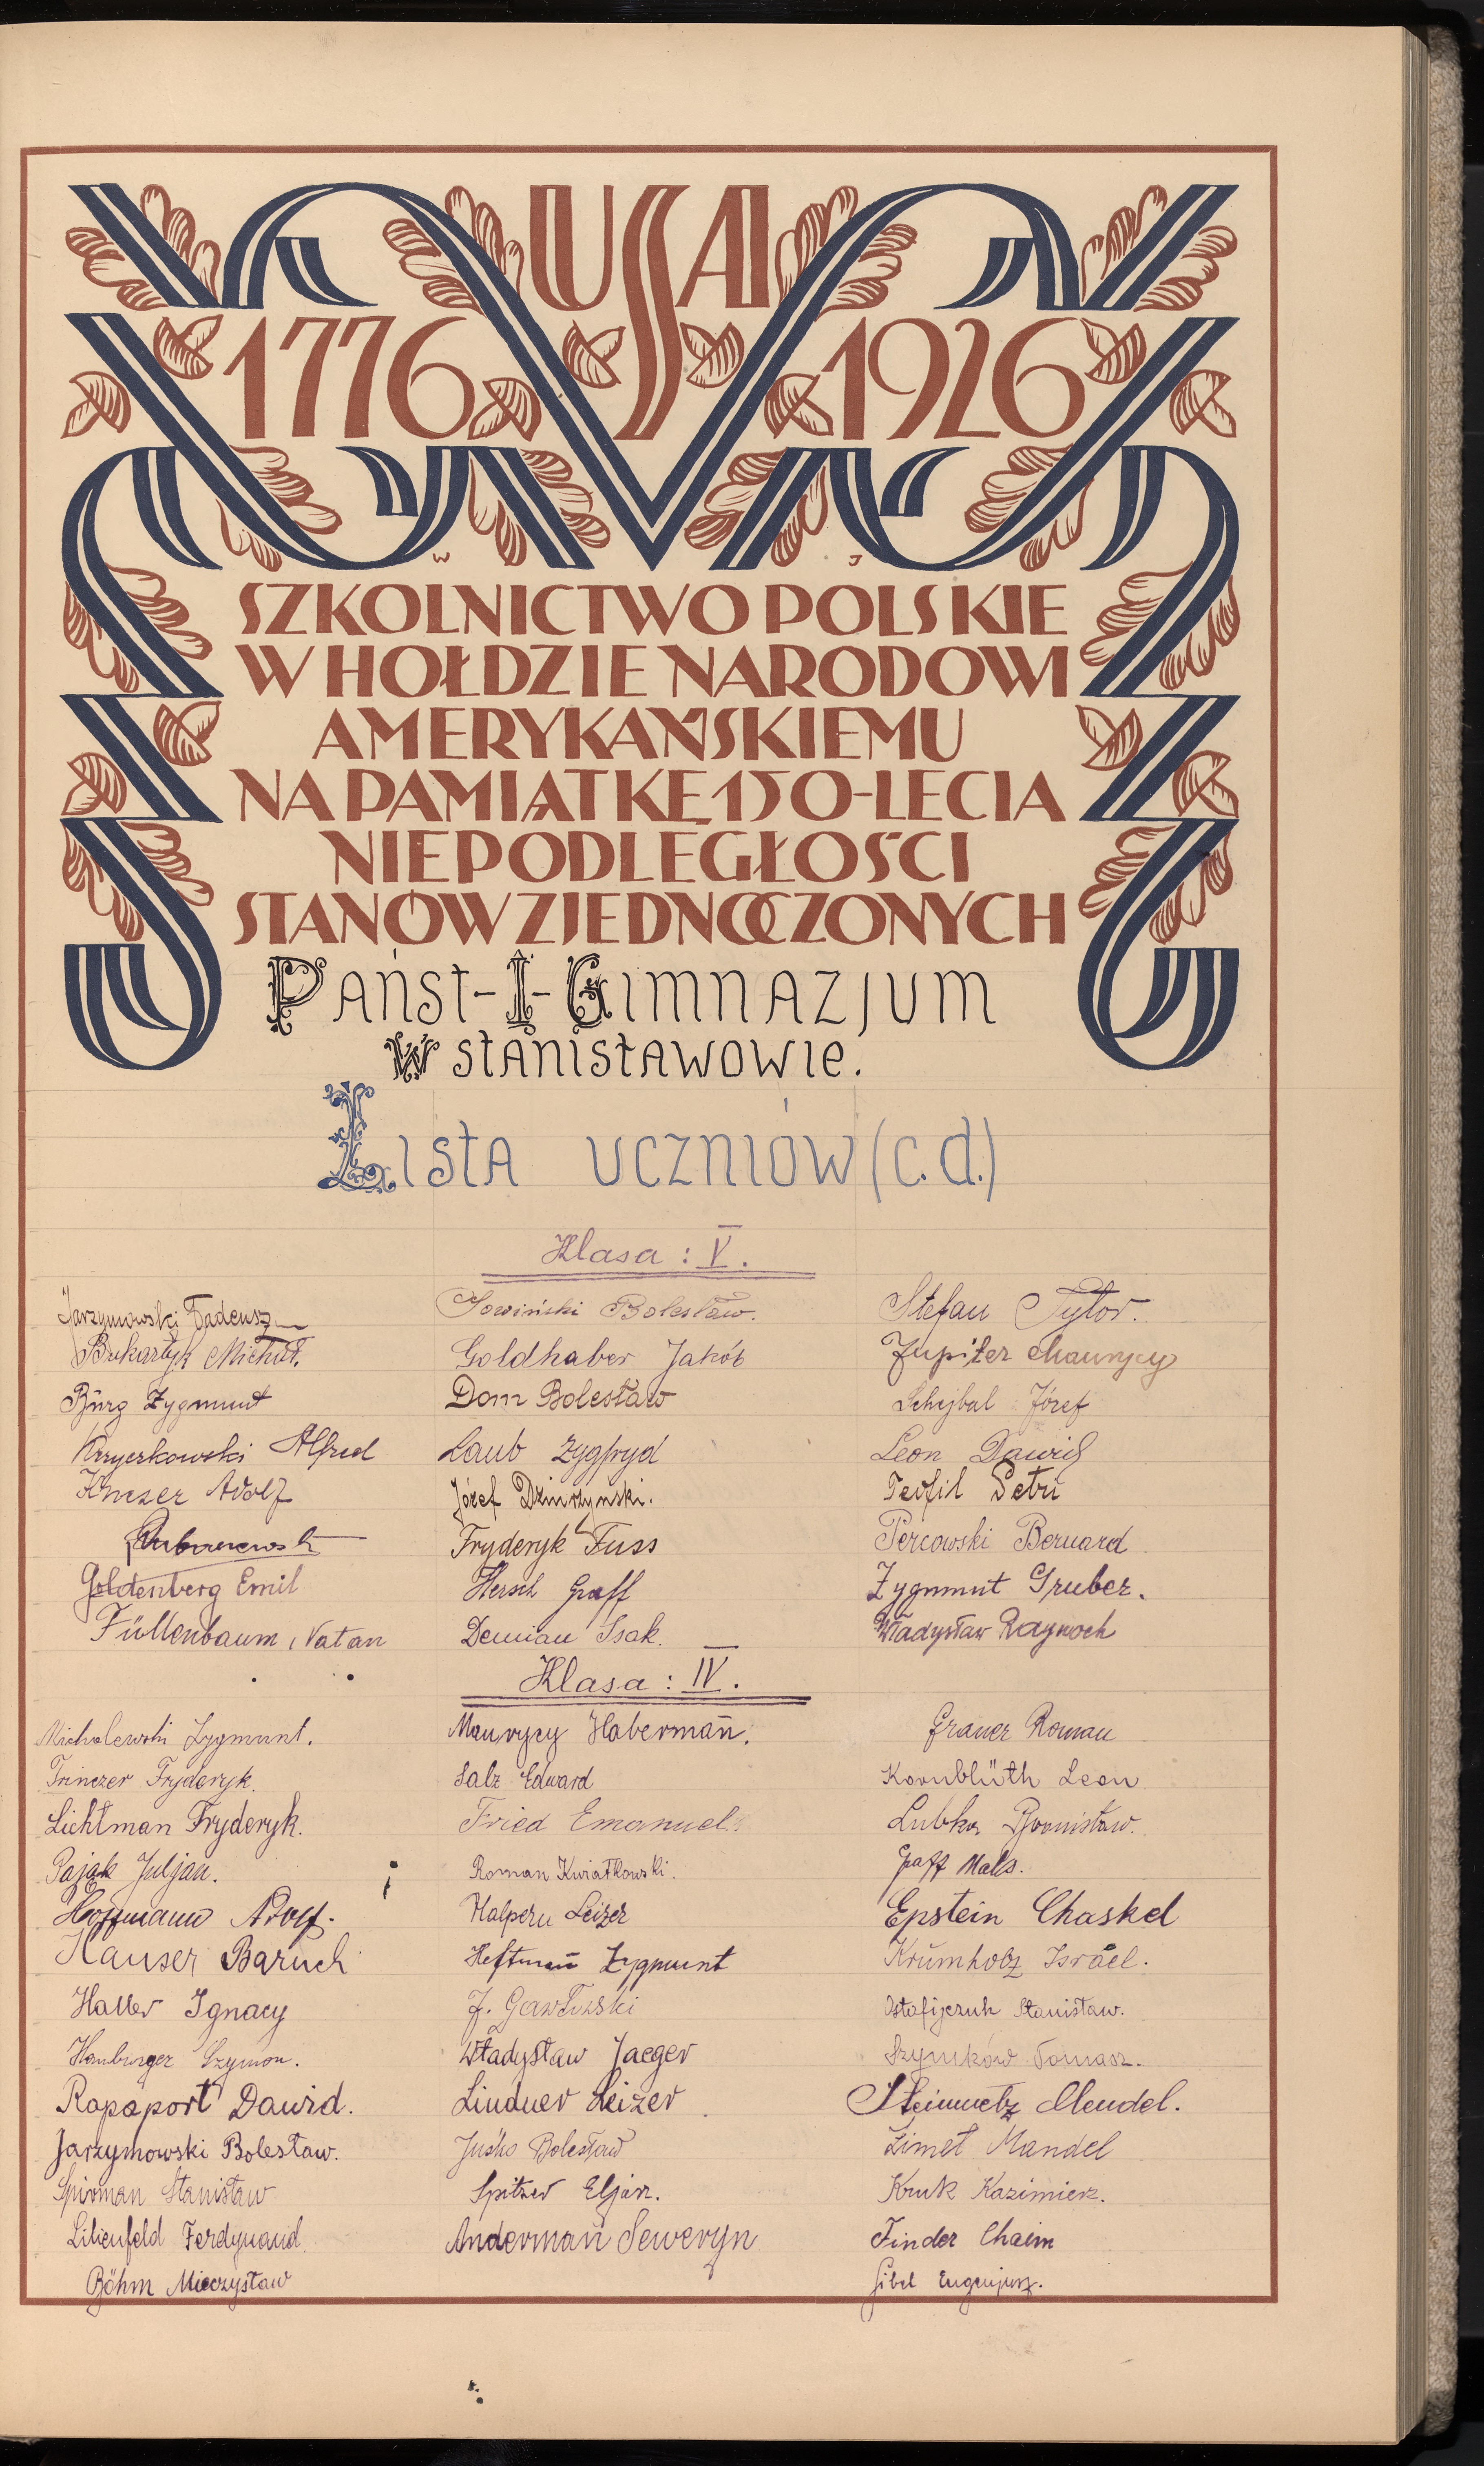 USA
1776 1926
W J
SZKOLNICTWO POLSKIE
W HOŁDZIE NARODOWI
AMERYKAŃSKIEMU
NA PAMIĄTKĘ 150-LECIA
NIEPODLEGŁOŚCI
STANÓW ZJEDNOCZONYCH
Państ-I-Gimnazjum
w Stanisławowie.
Lista uczniów (c.d.)
Klasa : V.
Jarzymowski Tadeusz Bolesław. Stefan Tylor.
Michał. Goldhaber Jakób Jupiter Maurycy
Bürg Zygmunt Dom Bolesław Schejbal Józef
Alfred Laub Zygfryd Leon Dawid
Adolf Józef Teofil Petri
Fryderyk Fuss Percowski Bernard
Goldenberg Emil Hersch Graff Zygmunt Gruber.
Füllenbaum, Natan Demian Isak. Władysław Raynoch
Klasa : IV.
Michalewski Zygmunt. Maurycy Haberman. Grauer Roman
Trinczer Fryderyk. Salz Edward Kornblüth Leon
Lichtman Fryderyk. Fried Emanuel. Lubka Bronisław.
Pająk Juljan. Roman Kwiatkowski. Graff Maks.
Hoffmann Adolf. Halpern Leizer Epstein Chaskel
Hauser Baruch Heftman Zygmunt Krumholz Israel.
Haller Ignacy J. Gawłowski Ostafijczuk Stanisław.
Hamburger Szymon. Władysław Jaeger Szymków Tomasz.
Rapaport Dawid. Lindner Leizer Steinmetz Mendel.
Jarzymowski Bolesław. Juśko Bolesław Limet Mandel
Spirman Stanisław Spitzer Eljasz. Kruk Kazimierz.
Lilienfeld Ferdynand. Anderman Seweryn Finder Chaim
Böhm Mieczysław Gibel Eugenjusz.